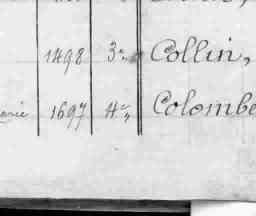 1498 3" Collin,
1697 4" Colombe